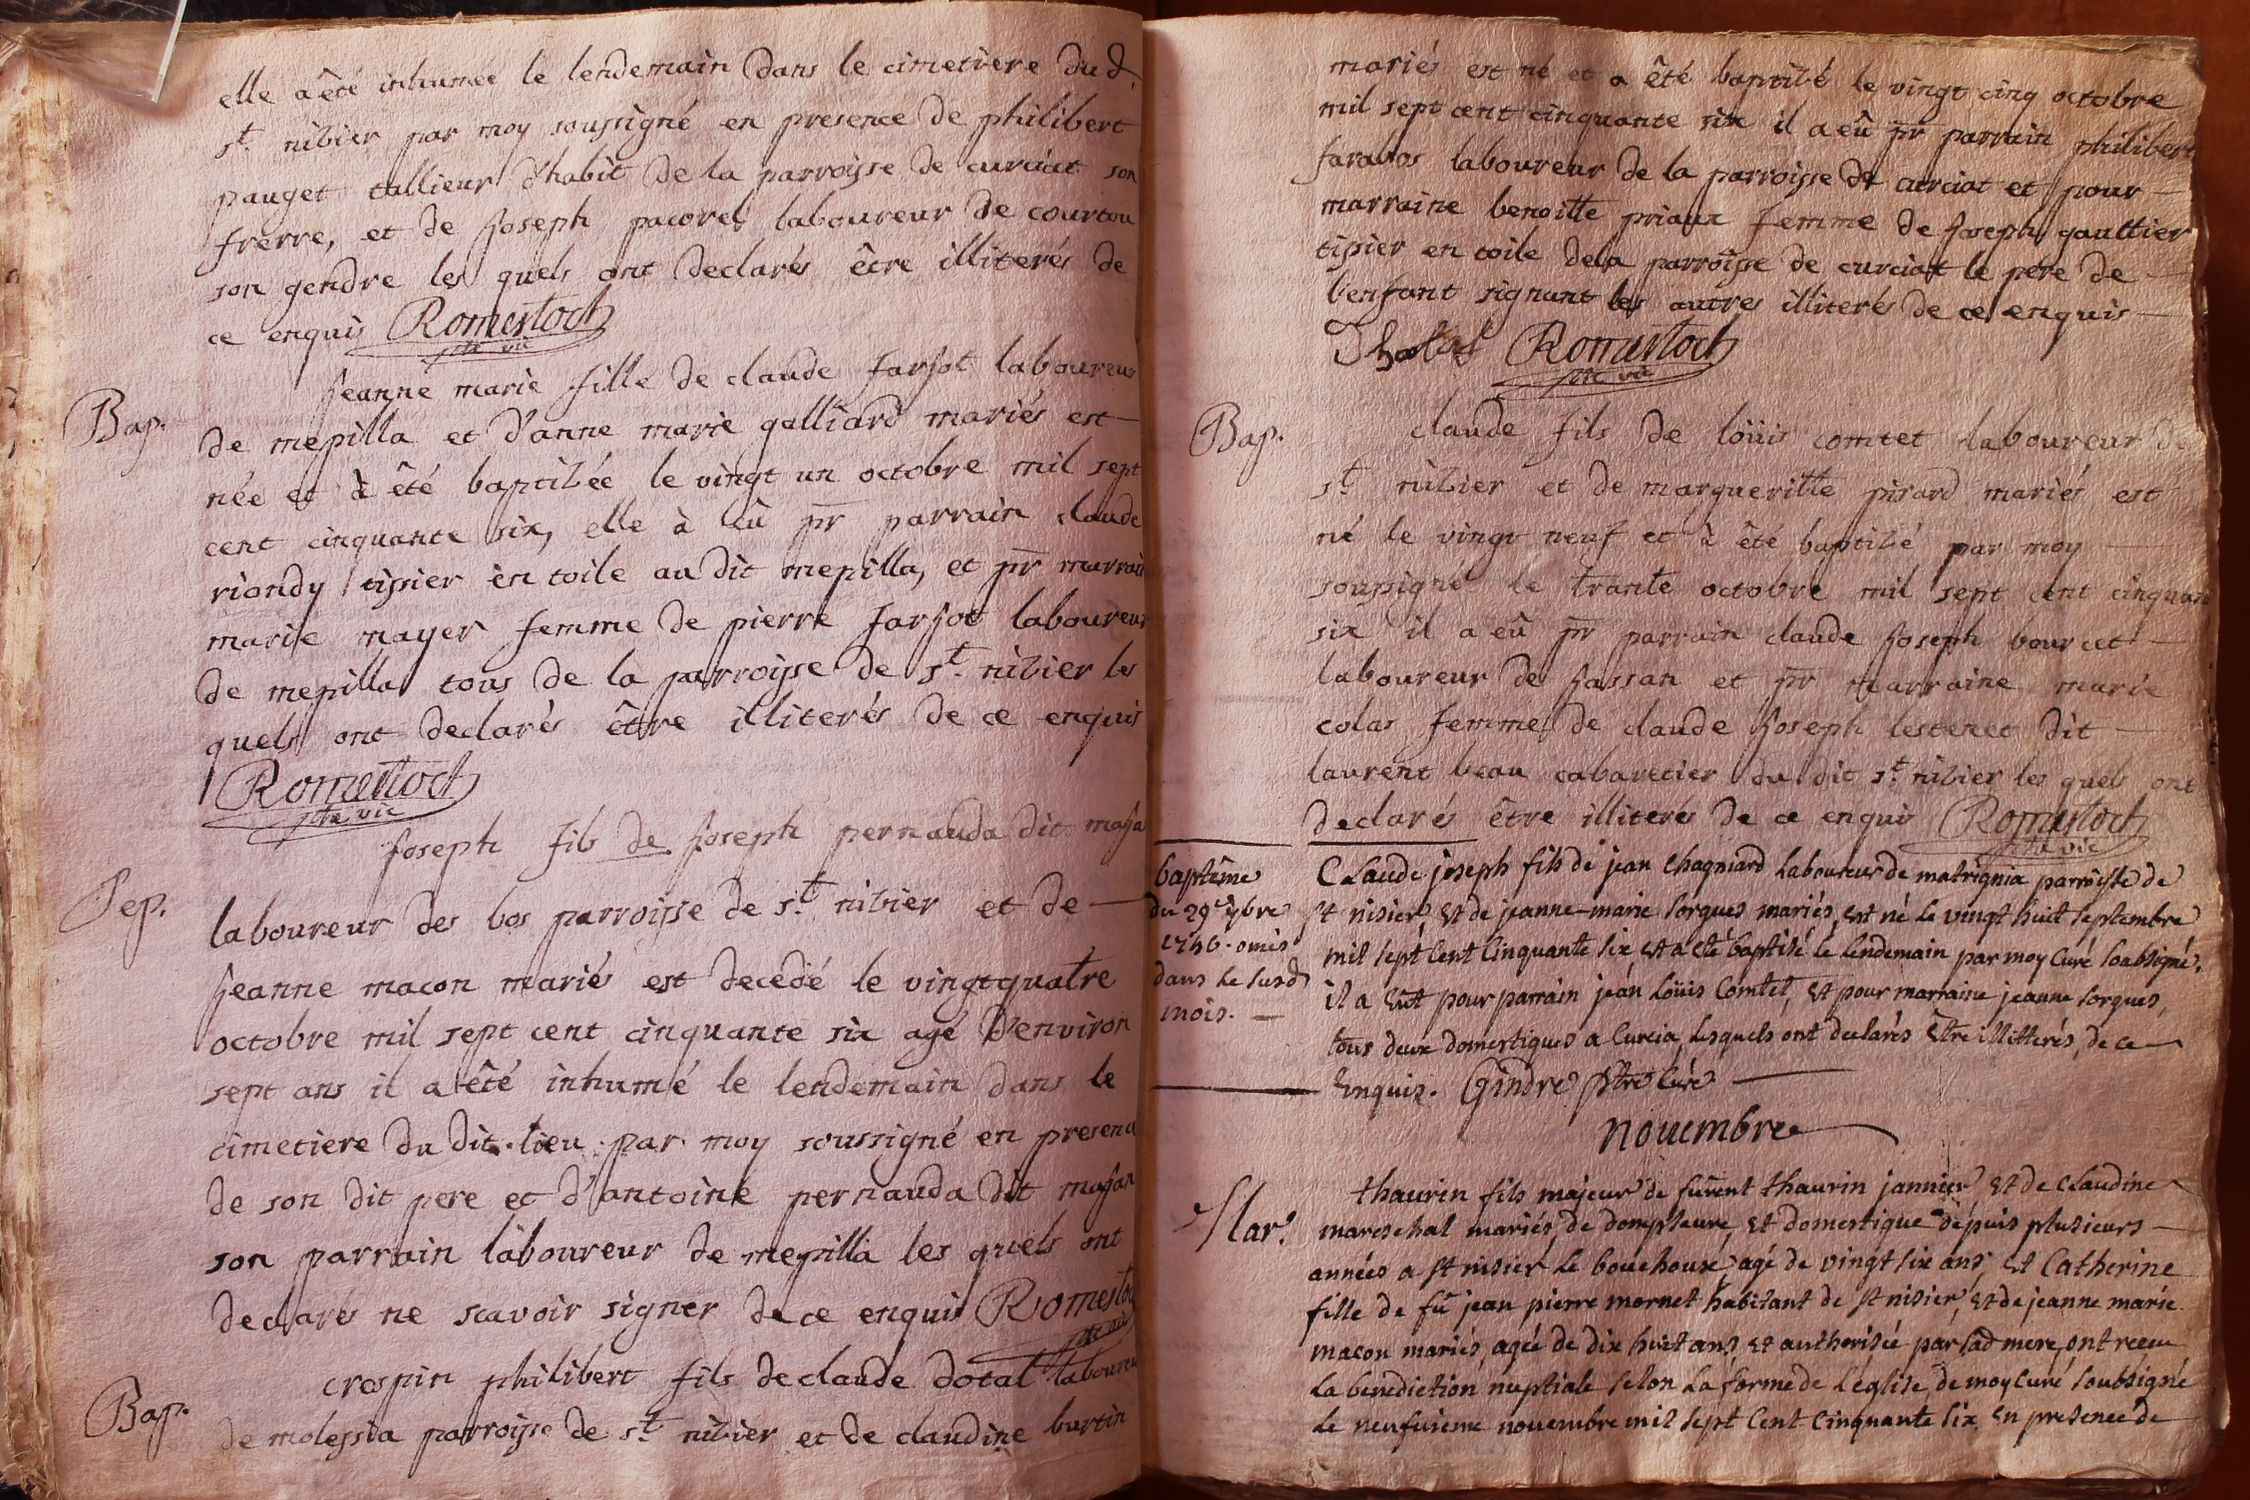 elle a été inhumée le lendemain dans le cimetiere du d.
st. nizier par moy soussigné en presence de philibert
pauget tallieur d'habit de la parroisse de curciat son
frerre, et de Joseph pacoret laboureur de courtou
son gendre les quels ont declarés être illiterés de
ce enquis Romestoch
ptre vic
Bap.
Jeanne marie fille de claude farjot laboureur
de mepilla et d'anne marie galliard mariés est
née et à êté baptizée le vingt un octobre mil sept
cent cinquante six, elle à eû pr parrain claude
riondy tissier en toile au dit mepilla, et pr marrai
marie mayer femme de pierre farjot laboureur
de mepilla tous de la parroisse de st. nizier les
quels ont declarés être illiterés de ce enquis
Romestoch
ptre vic
Sep.
Joseph fils de Joseph pernauda dit maja
laboureur des bos parroisse de st. nizier et de
Jeanne macon mariés est decedé le vingtquatre
octobre mil sept cent cinquante six agé d'environ
sept ans il a êté inhumé le lendemain dans le
cimetiere du dit lieu par moy soussigné en presence
de son dit pere et d'antoine pernauda dit majan
son parrain laboureur de mepilla les quels ont
declarés ne scavoir signer de ce enquis Romestoch
ptre vic
Bap.
crespin philibert fils de claude dotal laboureu
de molessia parroisse de st. nizier et de claudine burtin
mariés est né et a êté baptizé le vingt cinq octobre
mil sept cent cinquante six il a eû pr parrain philibert
farabos laboureur de la parroisse de curciat et pour
marraine benoitte priaux femme de Joseph gaultier
tissier en toile dela parroisse de curciat le pere de
l'enfant signant les autres illiterés de ce enquis
Romestoch
ptre vic
Bap.
claude fils de loüis comtet laboureur de
st. nizier et de margueritte pisard mariés est
né le vingt neuf et à êté baptizé par moy
soussigné le trante octobre mil sept cent cinquan
six il a eû pr parrain claude Joseph bourcet
laboureur de Jassan et pr marraine marie
colas femme de claude Joseph lestenet dit
laurent beau cabaretier du dit st. nizier les quels ont
declarés être illiterés de ce enquis Romestoch
ptre vic
baptême
du 29e 7bre
1756. omis
dans le susd
mois.
Claude joseph fils de jean Chagniard Laboureur de matrignia parroisse de
st nisier et de jeanne-marie sorgues mariés, est né le vingt huit septembre
mil sept cent cinquante six et a eté baptisé le lendemain par moy Curé soubsigné.
il a eut pour parrain jean Loüis Comtet, et pour marraine jeanne sorgues,
tous deux domestiques a Curcia, lesquels ont declarés être illitterés, de ce
enquis. Gindre ptre Curé
novembre
Mar.
thaurin fils majeur de furent thaurin jannier, et de Claudine
mareschal mariés, de dompsure, et domestique depuis plusieurs
années a st nisier le bouchoux, agé de vingt six ans, et Catherine
fille de fû jean pierre mornet habitant de st nisier, et de jeanne marie
macon mariés, agée de dix huit ans et authorisée par sad mere, ont receu
la benediction nuptiale selon la forme de l'église, de moy Curé soubsigné
le neufvieme novembre mil sept cent cinquante six. en presence de